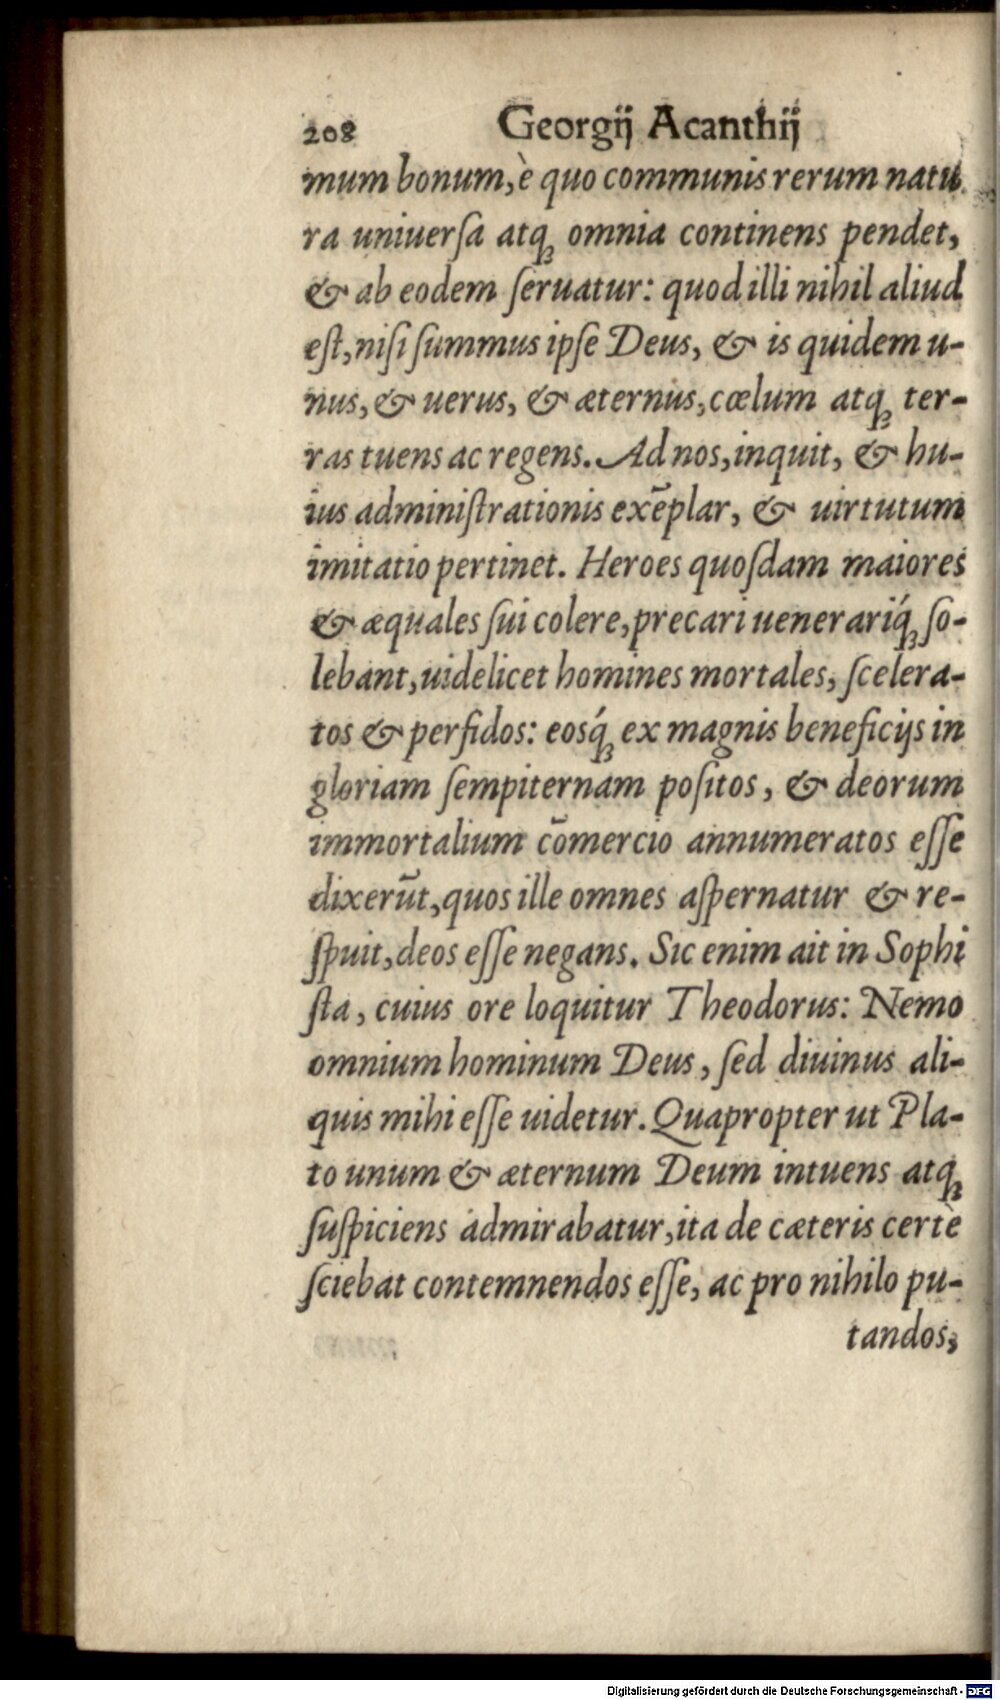 208 Georgij Acanthij
mum bonum, è quo communis rerum natu
ra uniuerſa atq́; omnia continens pendet,
& ab eodem ſeruatur: quod illi nihil aliud
eſt, niſi ſummus ipſe Deus, & is quidem u-
nus, & uerus, & æternus, cœlum atq; ter-
ras tuens ac regens. Ad nos, inquit, & hu-
ius adminiſtrationis exēplar, & uirtutum
imitatio pertinet. Heroes quoſdam maiores
& æquales ſui colere, precari uenerariq́; ſo-
lebant, uidelicet homines mortales, ſcelera-
tos & perfidos: eosq́; ex magnis beneficijs in
gloriam ſempiternam poſitos, & deorum
immortalium cōmercio annumeratos eſſe
dixerūt, quos ille omnes aſpernatur & re-
ſpuit, deos eſſe negans. Sic enim ait in Sophi
ſta, cuius ore loquitur Theodorus: Nemo
omnium hominum Deus, ſed diuinus ali-
quis mihi eſſe uidetur. Quapropter ut Pla-
to unum & æternum Deum intuens atq;
ſuſpiciens admirabatur, ita de cæteris certè
ſciebat contemnendos eſſe, ac pro nihilo pu-
tandos,
Digitalisierung gefördert durch die Deutsche Forschungsgemeinschaft - DFG